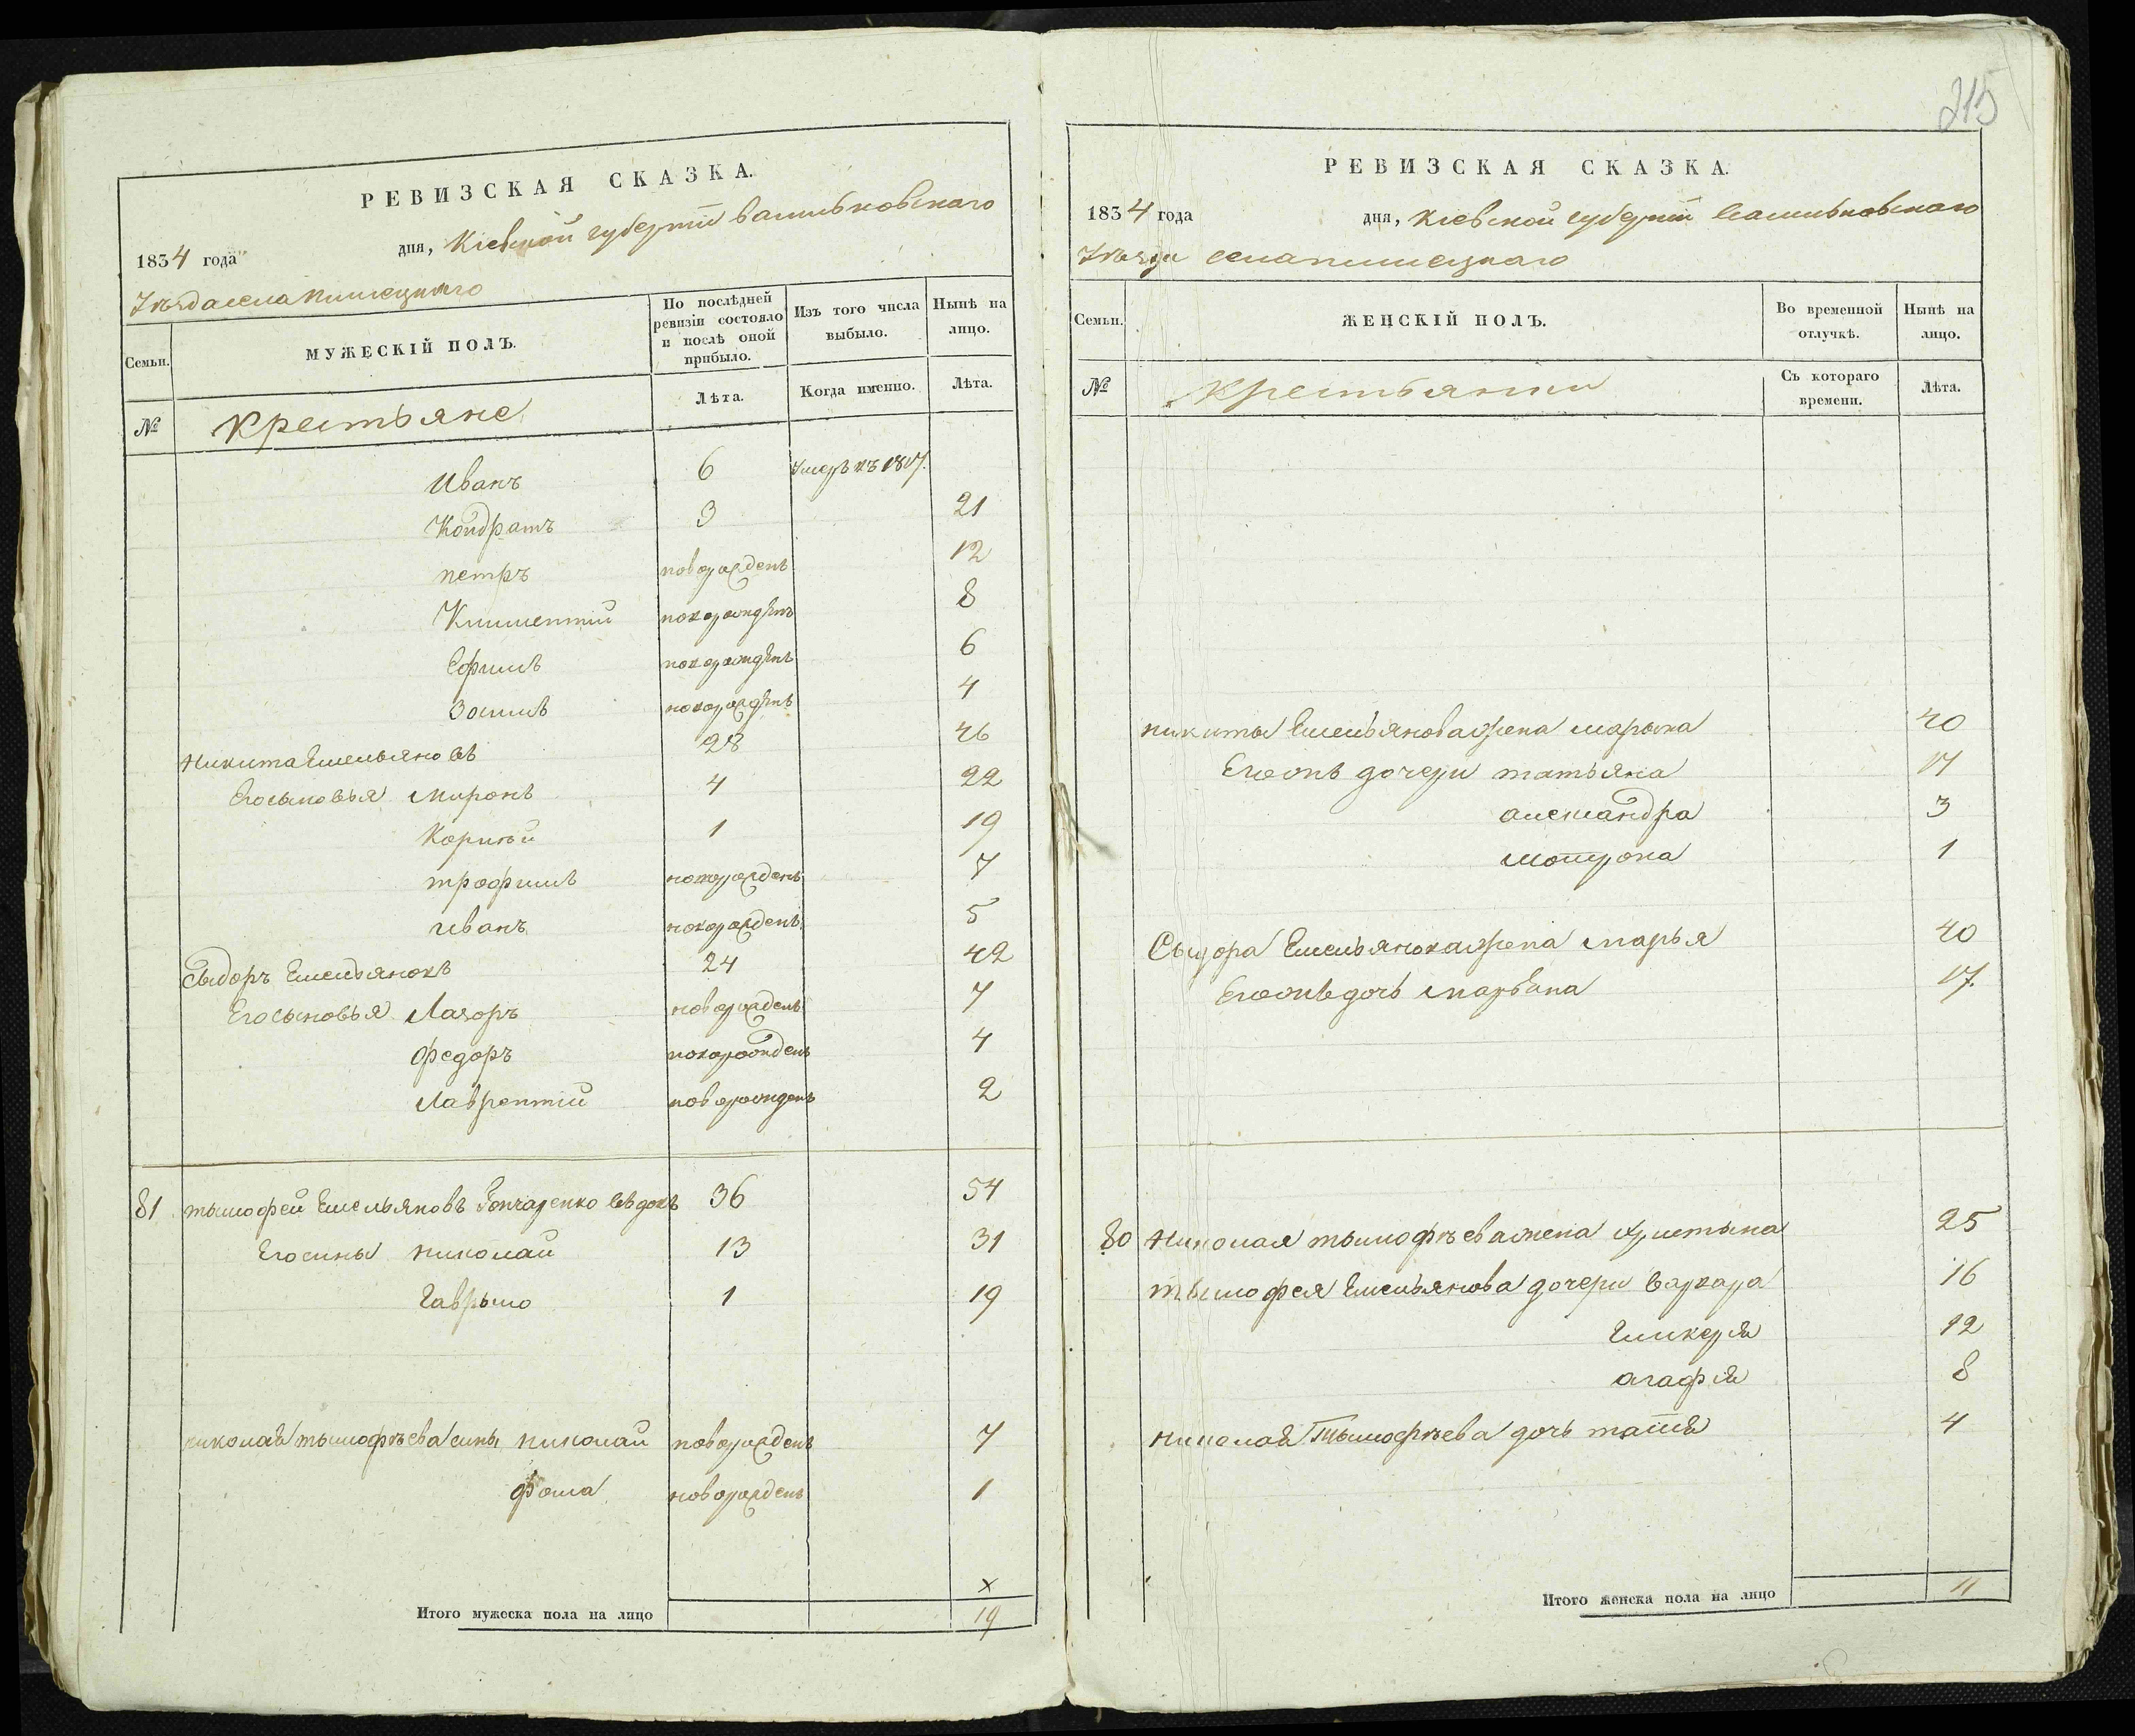 РЕВИЗСКАЯ СКАЗКА.
1834 года дня, Кіевской губерніи васильковскаго
Уѣзда села
Семьи.
МУЖЕСКІЙ ПОЛЪ.
По послѣдней ревизіи состояло и послѣ оной прибыло.
Изъ того числа выбыло.
Нынѣ на лицо.
№ крестьяне
Лѣта.
Когда именно.
Лѣта.
Иванъ 6 Умеръ въ 1817.
Кондратъ 3 21
петръ новорожденъ 12
Климентій новорожденъ 8
Ефимъ новорожденъ 6
Зосимъ новорожденъ 4
Никита Емельяновъ 28 46
Его сыновья Миронъ 4 22
Корнѣй 1 19
трофимъ новорожденъ 7
иванъ новорожденъ 5
Сыдоръ Емельяновъ 24 42
Его сыновья Лазоръ новорожденъ 7
Федоръ новорожденъ 4
Лаврентій новорожденъ 2
81 тымофей Емельяновъ Гончаренко вдовъ 36 54
Его сины николай 13 31
Гаврыло 1 19
николая тымофѣева сины николай новорожденъ 7
фома новорожденъ 1
х
Итого мужеска пола на лицо 19
215
РЕВИЗСКАЯ СКАЗКА.
1834 года дня, Кіевской губерніи Васильковскаго
Уѣзда села
Семьи.
ЖЕНСКІЙ ПОЛЪ.
Во временной отлучкѣ.
Нынѣ на лицо.
№ крестьянки
Съ котораго времени.
Лѣта.
никиты Емельянова жена марына 40
Его онѣ дочери татьяна 17
александра 3
мотрона 1
Сыдора Емельянова жена марья 40
Его онѣ дочь марѣана 17.
80 Николая тымофѣева жена христына 25
тымофея Емельянова дочери варвара 16
Гликерія 12
агафія 8
николая Тымофѣева дочь 4
Итого женска пола на лицо 11